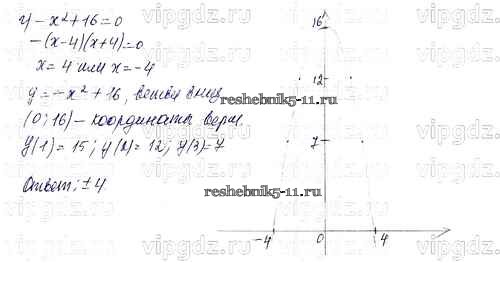 г) -x²+16=0
-(x-4)(x+4)=0
x=4 или x=-4
y=-x²+16, ветви вниз
(0; 16) - координаты верш.
y(1)=15; y(2)=12; y(3)=7
Ответ: ±4
16
12
7
-4 0 4
reshebnik5-11.ru
reshebnik5-11.ru
vipgdz.ru